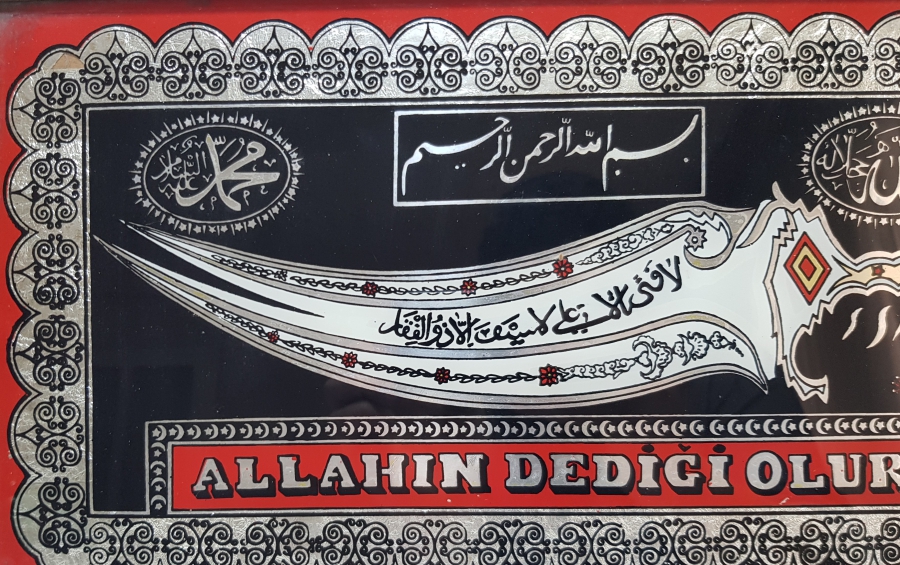 محمد عليه السلام
بسم الله الرحمن الرحيم
لا فتى الا علي لا سيف الا ذو الفقار
ALLAHIN DEDİĞİ OLUR